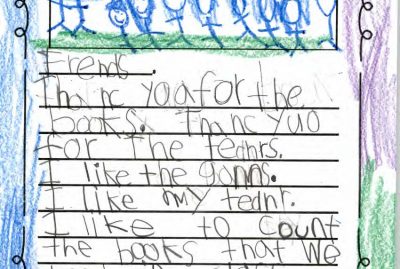 Frends.
Thanc yoa for the
books. Thanc yuo
for the tednrs.
I like the
I like my tednr.
I like to count
the books that we